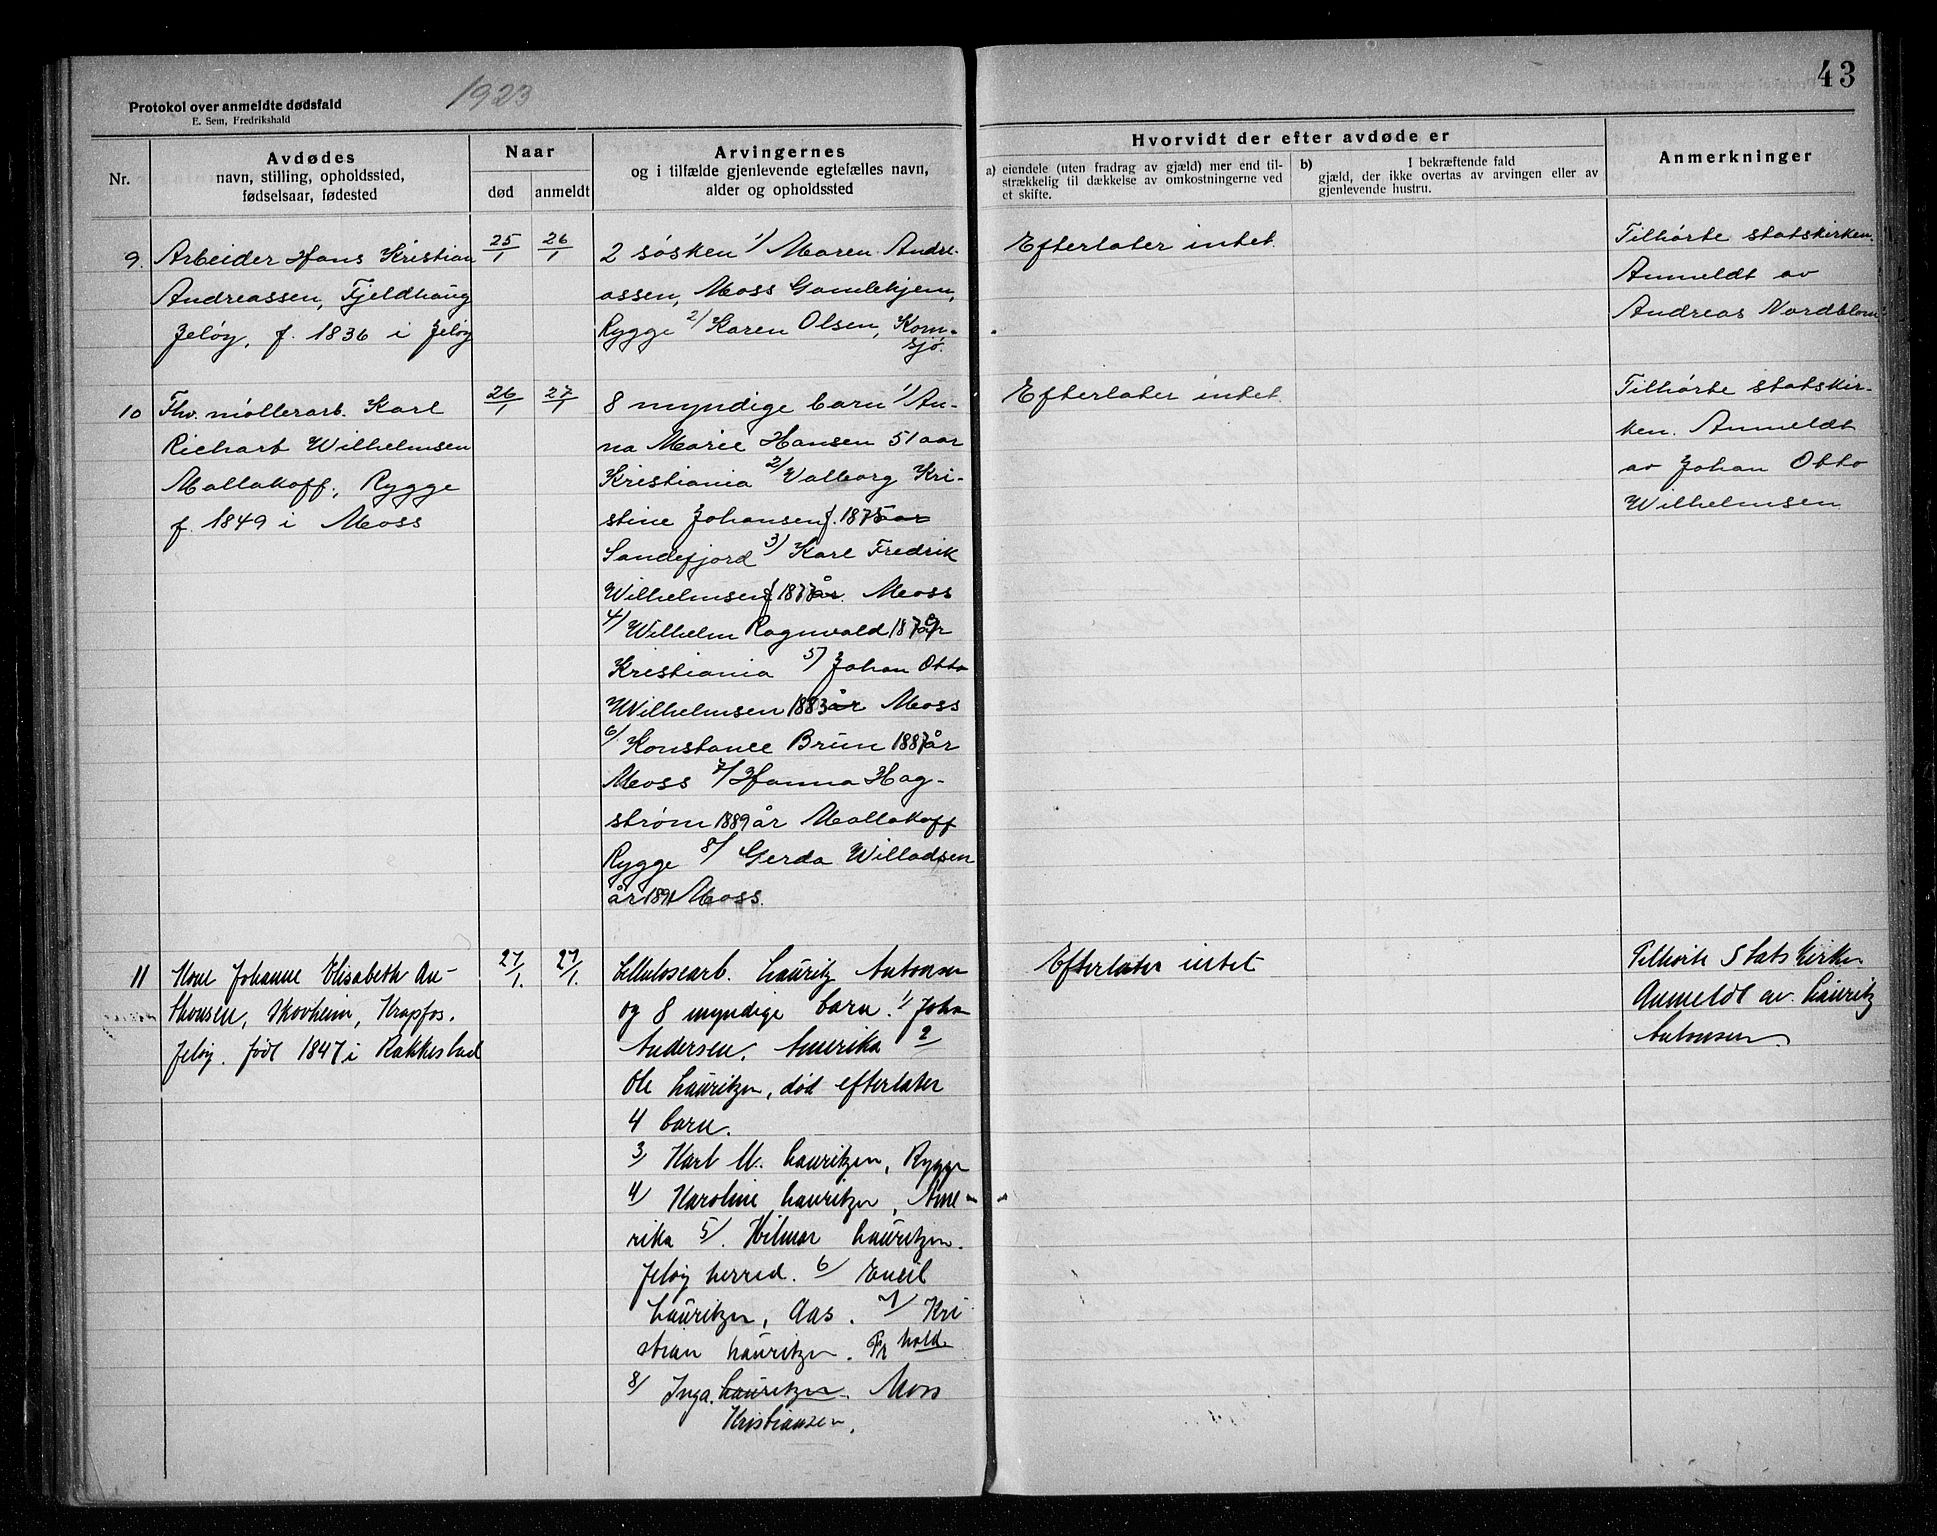 43
1923
Protokol over anmeldte dødsfald
E. Sem, Fredrikshald
Nr.
Avdødes
navn, stilling, opholdssted,
fødselsaar, fødested
Naar
død
anmeldt
Arvingernes
og i tilfælde gjenlevende egtefælles navn,
alder og opholdssted
Hvorvidt der efter avdøde er
a) eiendele (uten fradrag av gjæld) mer end til-
strækkelig til dækkelse av omkostningerne ved
et skifte.
b) I bekræftende fald
gjæld, der ikke overtas av arvingen eller av
gjenlevende hustru.
Anmerkninger
9.
Arbeider Hans Kristian
Andreassen, Fjeldhaug
Jeløy, f. 1836 i Jeløy
25/1
26/1
2 søsken 1/ Maren Andre-
assen, Moss Gamlehjem,
Rygge 2/ Karen Olsen, Korn-
sjø.
Efterlater intet.
Tilhørte statskirken.
Anmeldt av
Andreas Nordblom
10
Fhv. møllerarb. Karl
Richart Wilhelmsen
Mallakoff, Rygge
f. 1849 i Moss
26/1
27/1
8 myndige barn 1/ An-
na Marie Hansen 51 aar
Kristiania 2/ Valborg Kri-
stine Johansen f. 1875 aar
Sandefjord 3/ Karl Fredrik
Wilhelmsen f 1877 år. Moss
4/ Wilhelm Ragnvald 187 år
Kristiania 5/ Johan Otto
Wilhelmsen 1883 år Moss
6/ Konstance Brun 1887 år
Moss 7/ Hanna Hag-
strøm 1889 år Mallakoff
Rygge 8/ Gerda Willadsen
år 1891 Moss.
Efterlater intet
Tilhørte statskir-
ken. Anmeldt
av Johan Otto
Wilhelmsen
11
Kone Johanne Elisabeth An-
thonsen, Skovheim, Krapfos.
Jeløy. født 1847 i Rakkestad
27/1.
29/1.
Cellulosearb. Lauritz Antonsen
og 8 myndige barn. 1/ Joha
Andersen. Amerika 2
Ole Lauritzen, død efterlater
4 barn.
3/ Karl M. Lauritzen, Rygge
4/ Karoline Lauritzen, Ame-
rika 5/. Hilmar Lauritzen.
Jeløy herred. 6/ Emil
Lauritzen, Aas. 7/ Kri
stian Lauritzen.
8/ Inga Lauritzen. Moss
Kristiansen.
Efterlater intet
Tilhørte Statskirken
Anmeldt av Lauritz
Antonsen.